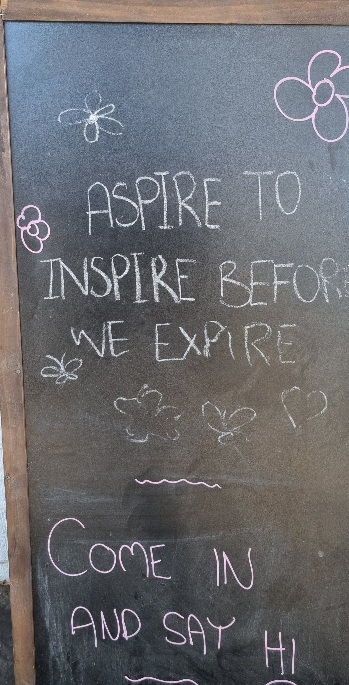 ASPIRE TO
INSPIRE BEFORE
WE EXPIRE
COME IN
AND SAY HI